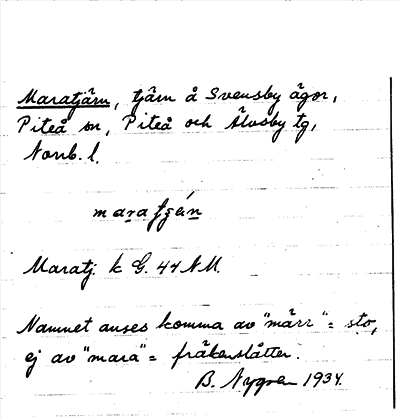 Maratjärn, tjärn å Svensby ägor,
Piteå sn, Piteå och Älvsby tg,
Norrb. l.
Maratj. k G. 44 N.M.
Namnet anses komma av "märr" = sto,
ej av "mara" = fräkenslåtter.
B. Nygren 1934.